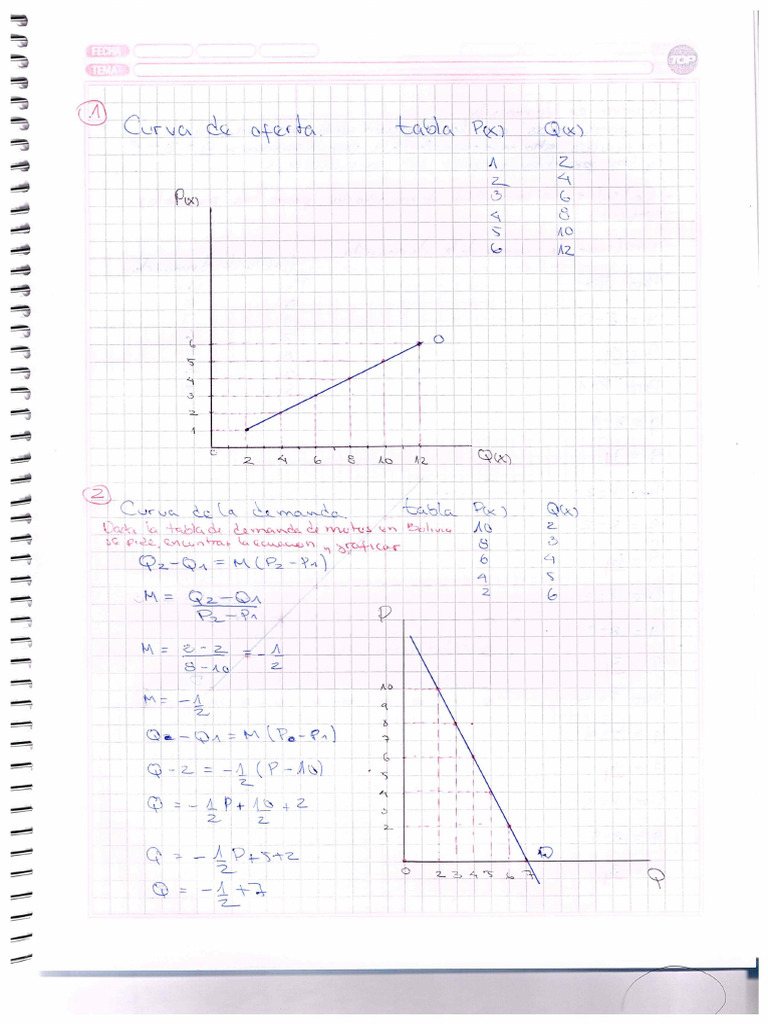 FECHA
TEMA
TOP
1 Curva de oferta. tabla P(x) Q(x)
1 2
2 4
3 6
4 8
5 10
6 12
P(x)
6
5
4
3
2
1
0 2 4 6 8 10 12 Q(x)
O
2 Curva de la demanda. tabla P(x) Q(x)
Dada la tabla de demanda de motos en Bolivia 10 2
se pide, encontrar la ecuacion y graficar 8 3
Q2-Q1 = M(P2-P1) 6 4
4 5
M = Q2-Q1 / P2-P1 2 6
P
M = 2-2 / 8-10 = -1/2
M = -1/2
Q-Q1 = M(P-P1)
Q-2 = -1/2 (P-10)
Q = -1/2 P + 10/2 + 2
Q = -1/2 P+5+2
Q = -1/2 +7
10
9
8
7
6
5
4
3
2
D
0 2 3 4 5 6 7 Q